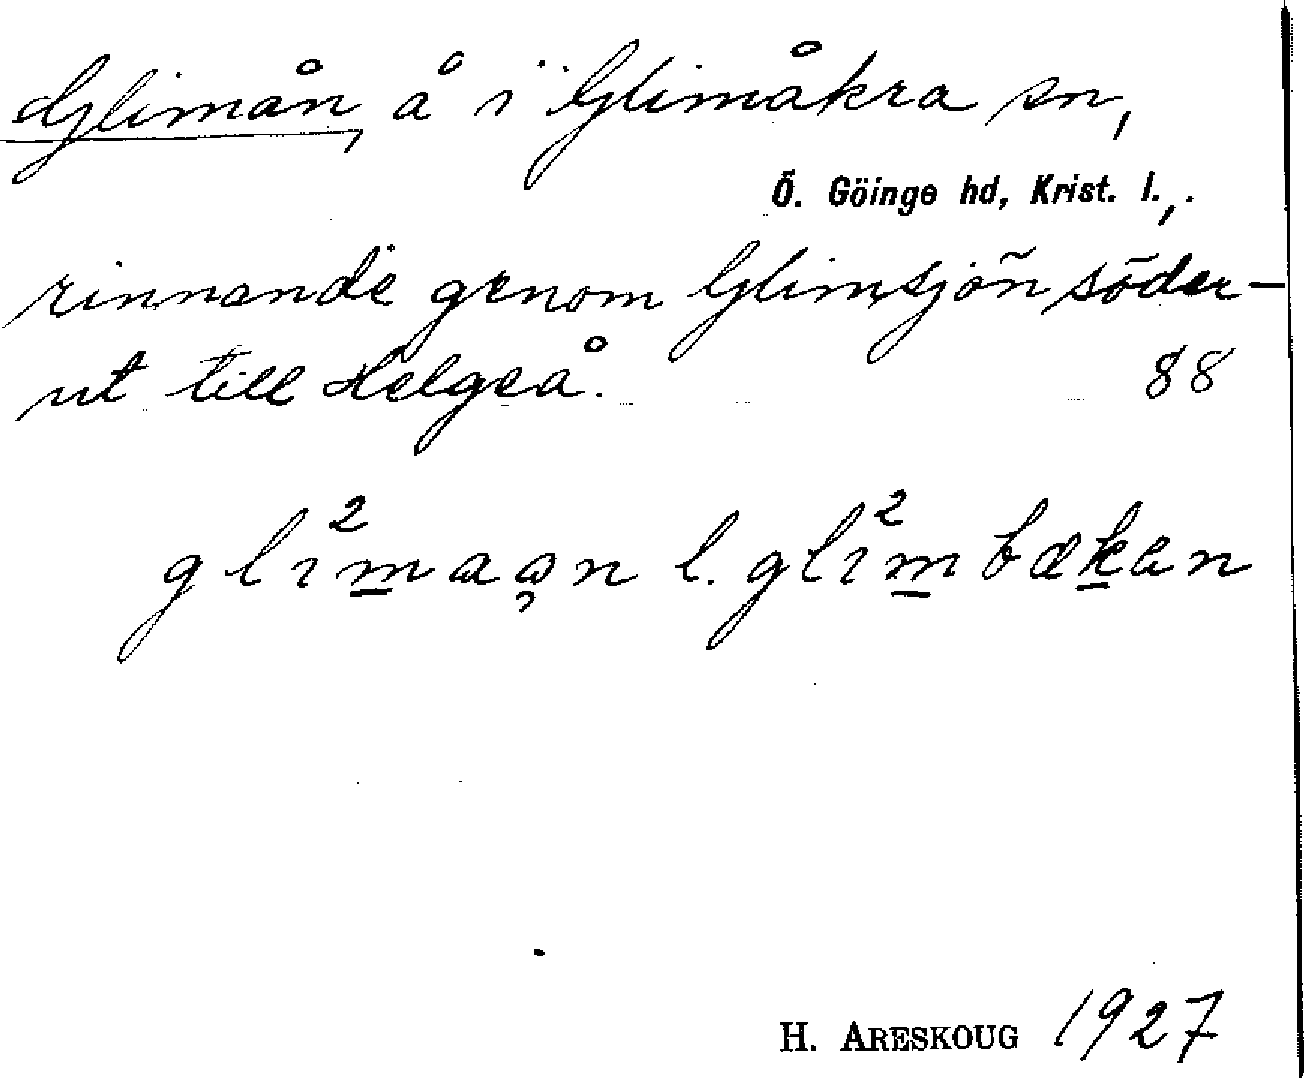 Glimån, å i Glimåkra sn,
Ö. Göinge hd, Krist. l.,.
rinnande genom Glimsjön söder-
ut till Helgeå. 88
gli²m̲aa̡n l. gli²m̲bæk̲en
H. ARESKOUG 1927